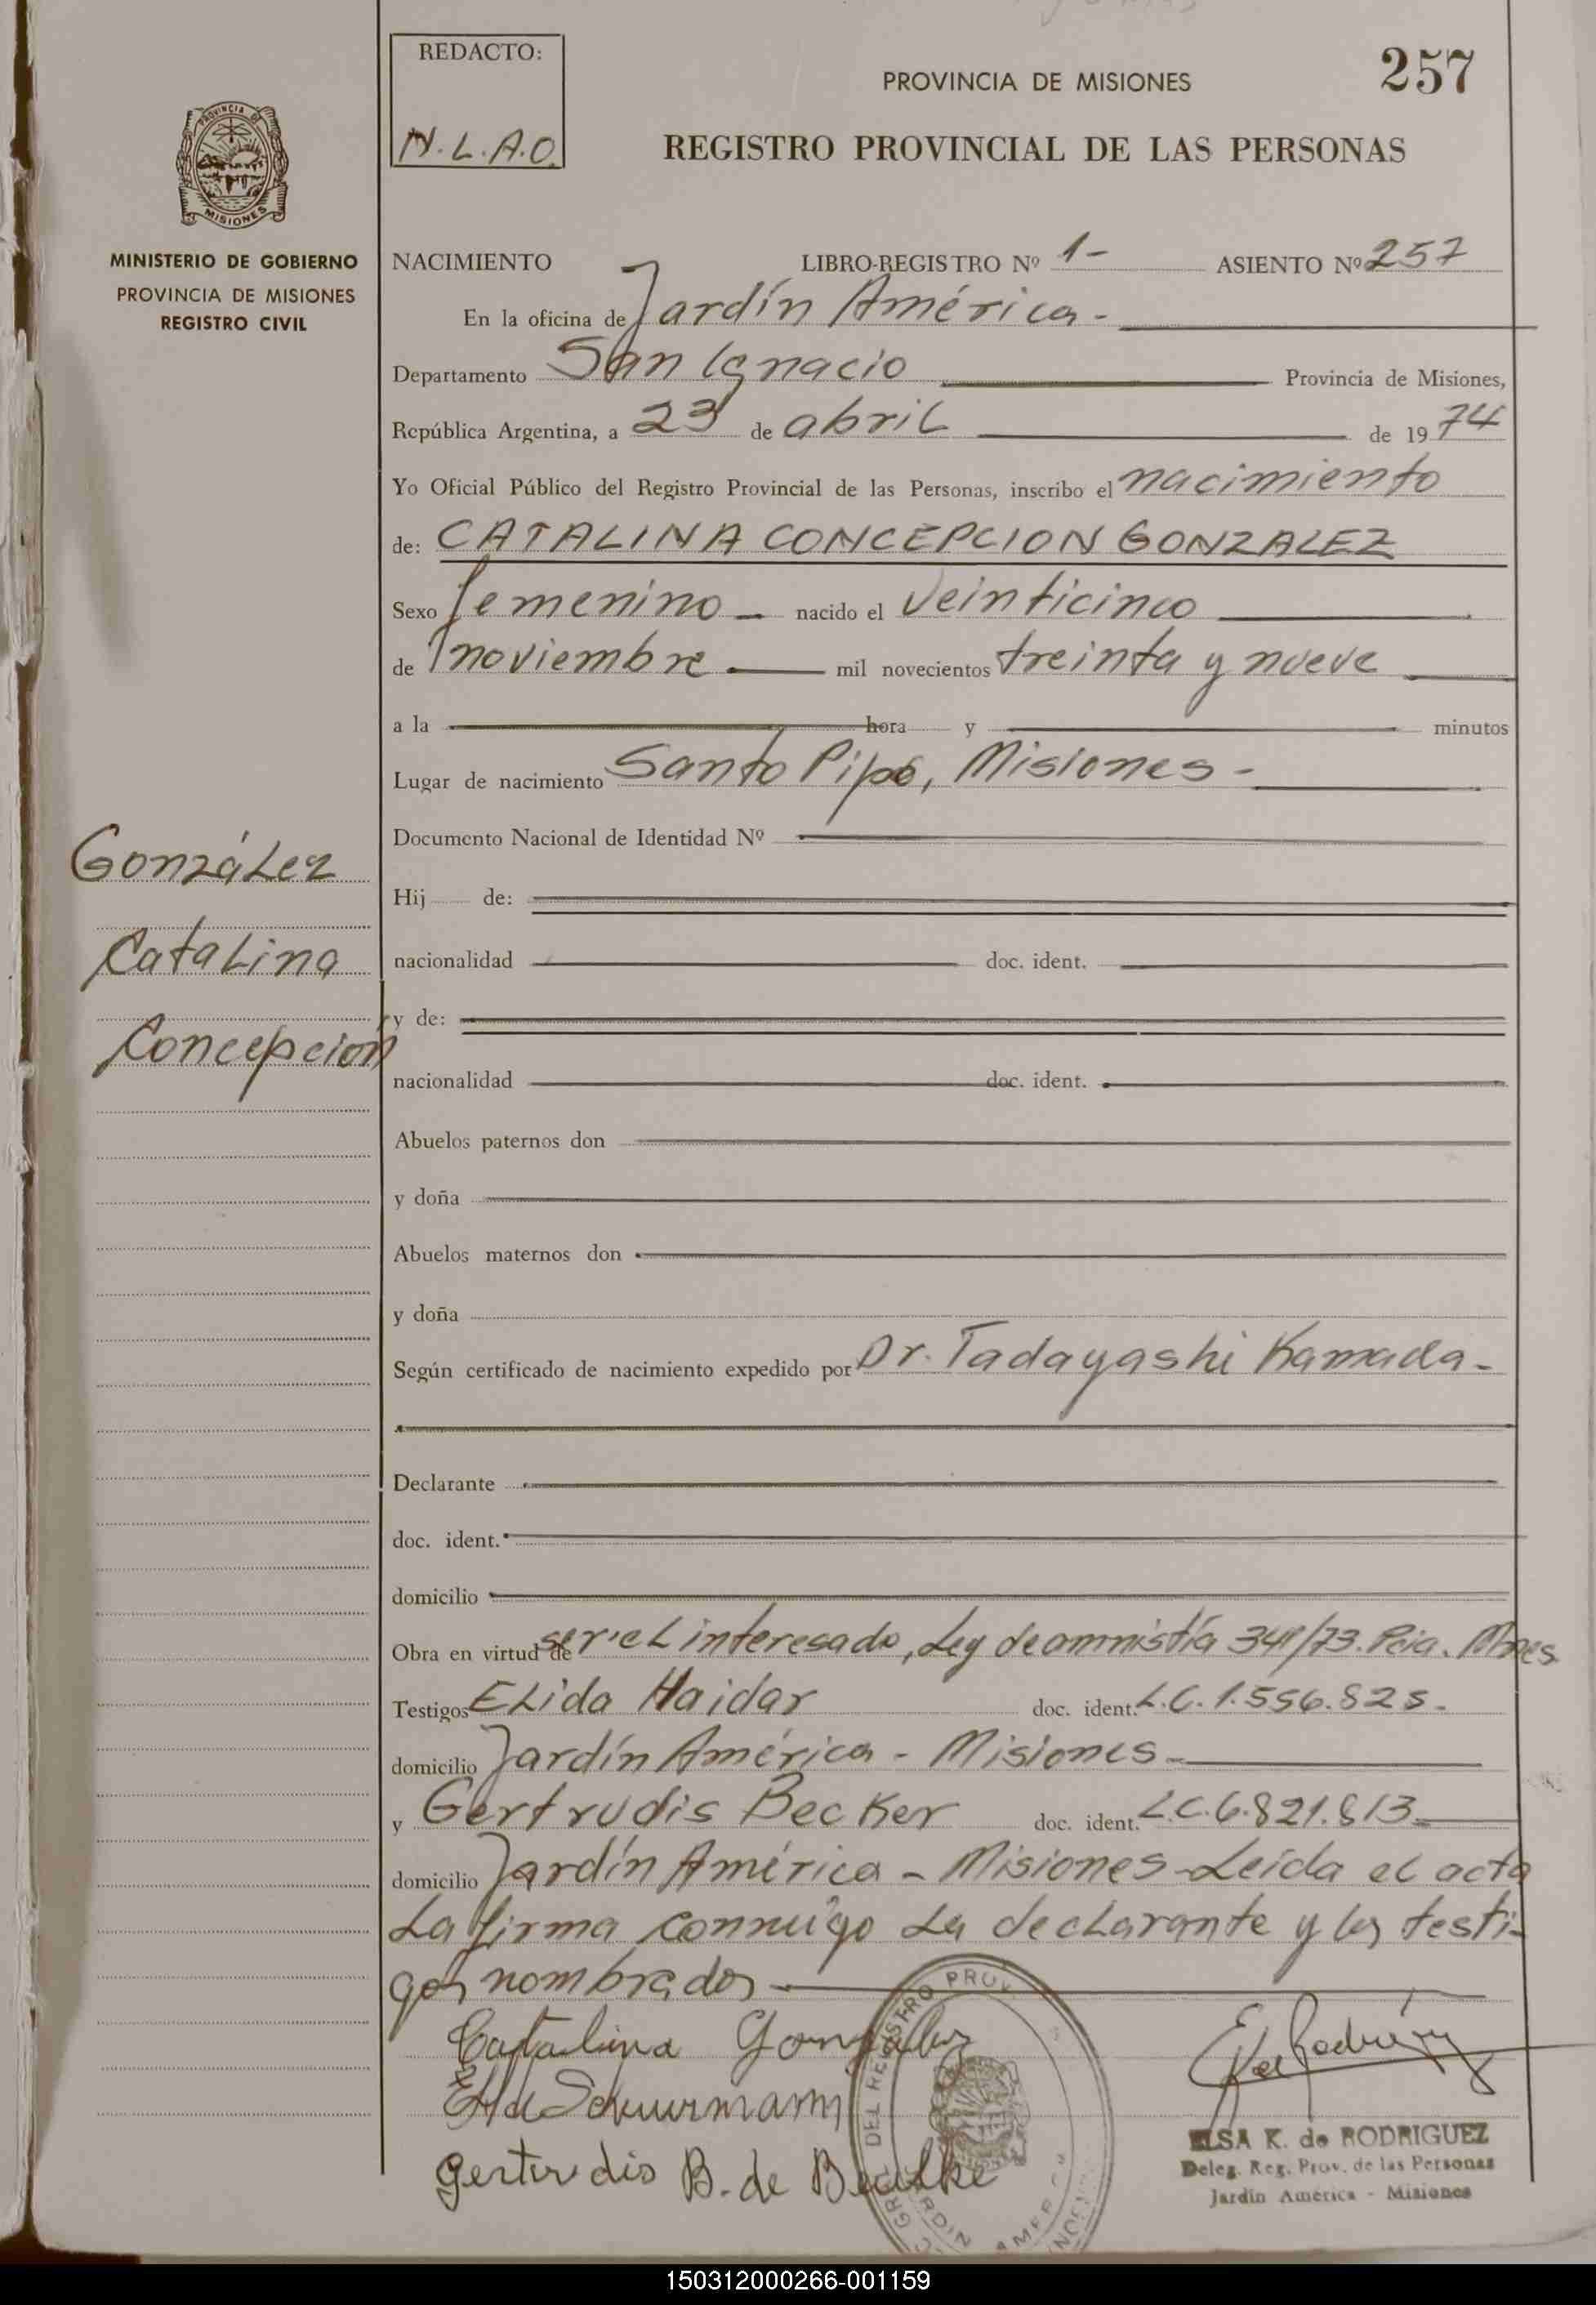 REDACTO:
N.L.A.O.
PROVINCIA DE MISIONES
257
REGISTRO PROVINCIAL DE LAS PERSONAS
PROVINCIA DE
MISIONES
MINISTERIO DE GOBIERNO
PROVINCIA DE MISIONES
REGISTRO CIVIL
NACIMIENTO LIBRO-REGISTRO Nº 1- ASIENTO Nº 257
En la oficina de Jardín América -
Departamento San Ignacio Provincia de Misiones,
República Argentina, a 23 de abril de 1974
Yo Oficial Público del Registro Provincial de las Personas, inscribo el nacimiento
de: CATALINA CONCEPCION GONZALEZ
Sexo femenino - nacido el veinticinco
de noviembre mil novecientos treinta y nueve
a la hora y minutos
Lugar de nacimiento Santo Pipó, Misiones -
Documento Nacional de Identidad Nº
González
Catalina
Concepción
Hij de:
nacionalidad doc. ident.
y de:
nacionalidad doc. ident.
Abuelos paternos don
y doña
Abuelos maternos don
y doña
Según certificado de nacimiento expedido por Dr. Tadayashi Kamada -
Declarante
doc. ident.
domicilio
Obra en virtud de ser el interesado, Ley de amnistía /73. Pcia. Mnes
Testigos Elida Haidar doc. ident. L.C. 1.556.825.-
domicilio Jardín América - Misiones -
y Gertrudis Becker doc. ident. L.C. 6.821.813
domicilio Jardín América - Misiones - Leída el acta
La firma conmigo La declarante y los testi-
gos nombrados
Catalina Gonzalez
Schuurmann
Gertrudis B. de
DEL REGISTRO PROV
JARDIN AMERICA
ELSA K. de RODRIGUEZ
Deleg. Reg. Prov. de las Personas
Jardín América - Misiones
150312000266-001159